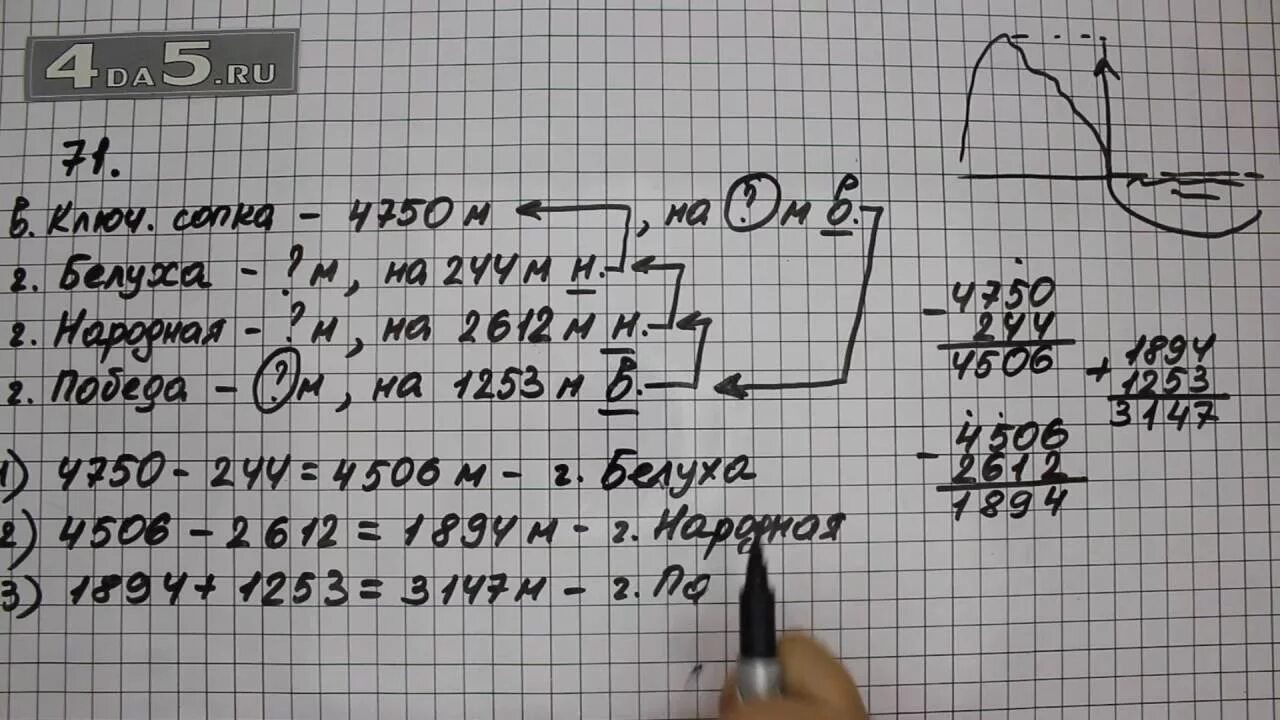 4DA5.RU
71.
в. Ключ. сопка - 4750 м, на ? м в.
г. Белуха - ? м, на 244 м н.
г. Народная - ? м, на 2612 м н.
г. Победа - ? м, на 1253 м в.
1) 4750 - 244 = 4506 м - г. Белуха
2) 4506 - 2612 = 1894 м - г. Народная
3) 1894 + 1253 = 3147 м - г. По
- 4750
244
4506
+ 1894
1253
3147
- 4506
2612
1894